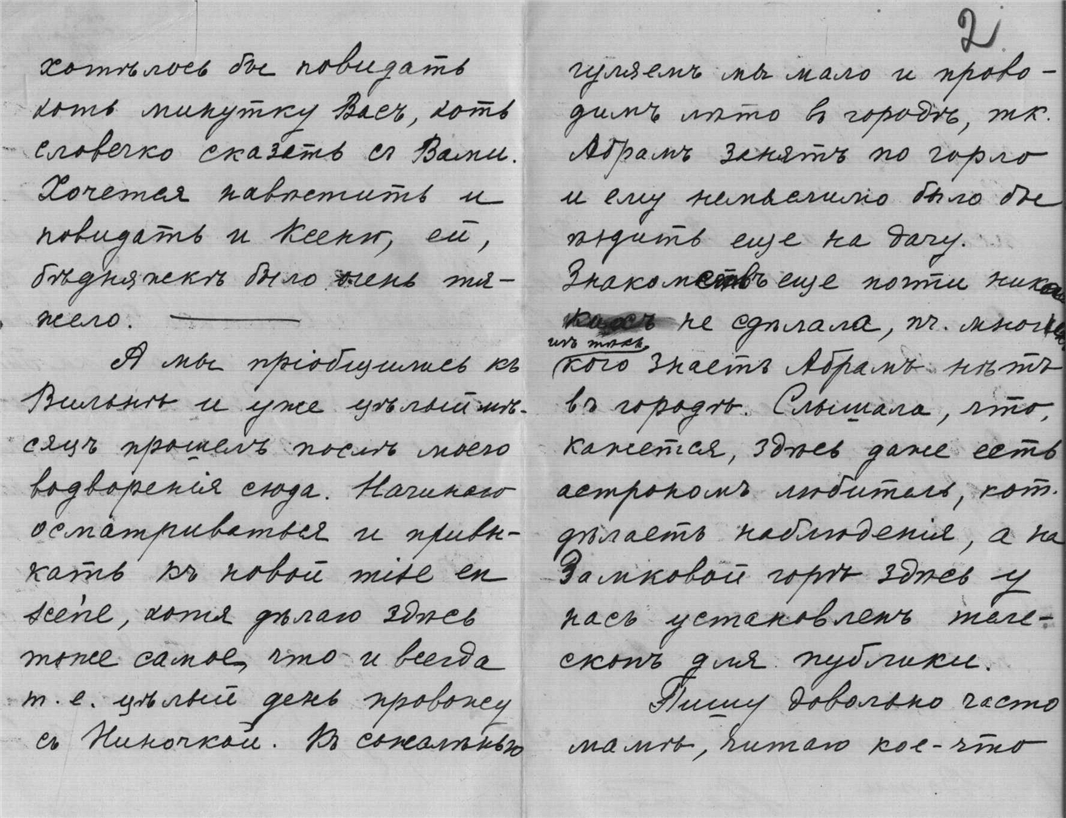 хотѣлось бы повидать
хоть минутку Васъ, хоть
словечко сказать съ Вами.
Хочется навѣстить и
повидать и Ксеню, ей,
бѣдняжкѣ было очень тя-
жело. ———
А мы пріобщились къ
Вильнѣ и уже цѣлый мѣ-
сяцъ прошелъ послѣ моего
водворенія сюда. Начинаю
осматриваться и привы-
кать къ новой mise en
scène, хотя дѣлаю здѣсь
тоже самое, что и всегда
т. е. цѣлый день провожу
съ Ниночкой. Къ сожалѣнью
2
гуляемъ мы мало и прово-
димъ лѣто въ городѣ, тк.
Абрамъ занятъ по горло
и ему немыслимо было бы
ѣздить еще на дачу.
Знакомствъ еще почти ника-
кихъ не сдѣлала, пч. многихъ
изъ тѣхъ
кого знаетъ Абрамъ нѣтъ
въ городѣ. Слышала, что,
кажется, здѣсь даже есть
астрономъ любитель, кот.
дѣлаетъ наблюденія, а на
Замковой горѣ здѣсь у
насъ установленъ теле-
скопъ для публики.
Пишу довольно часто
мамѣ, читаю кое-что